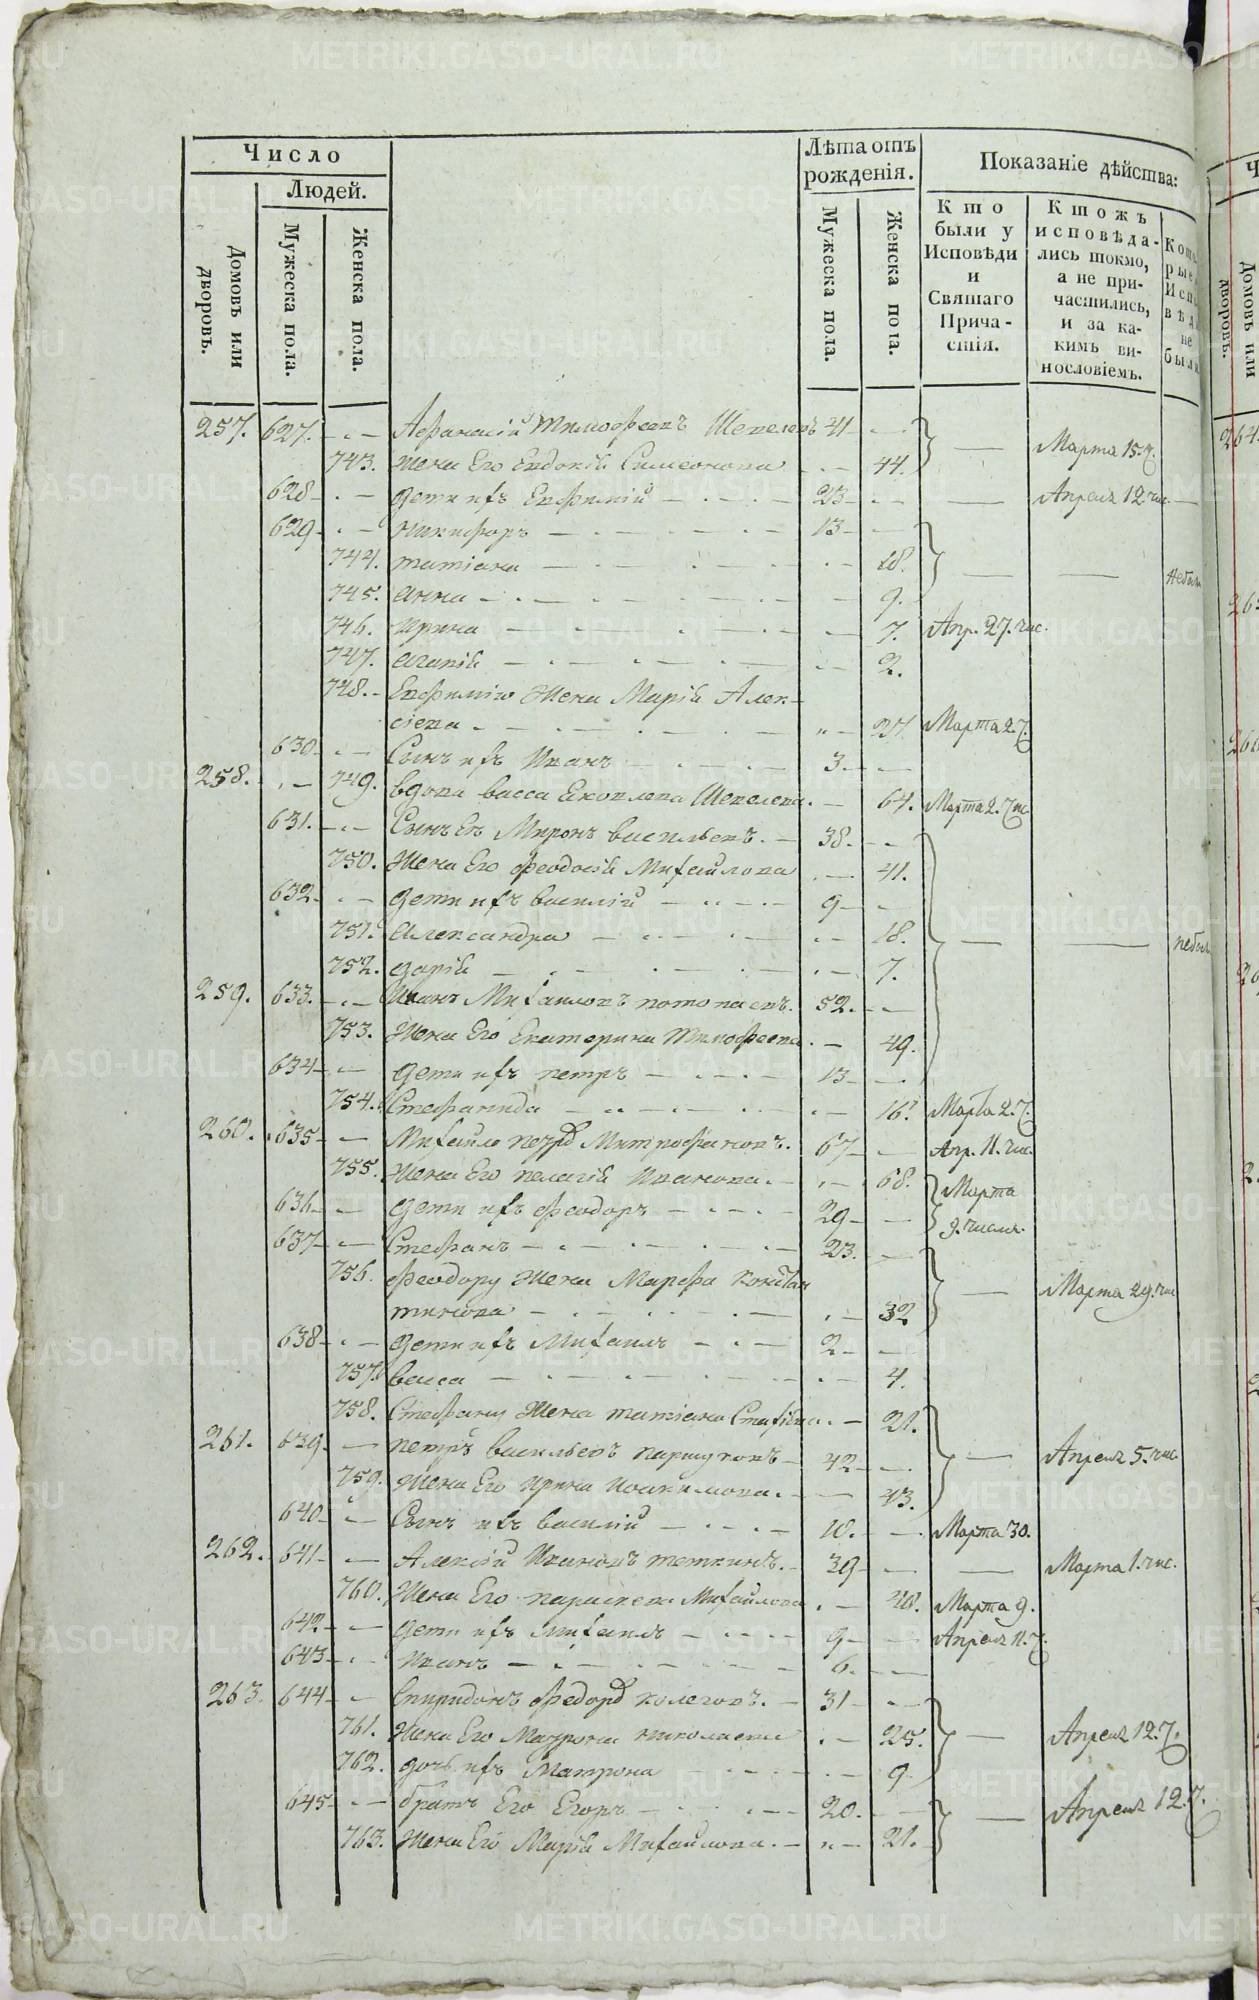 Число
Людей.
Домовъ или дворовъ.
Мужеска пола.
Женска пола.
Лѣта отъ рожденія.
Мужеска пола.
Женска пола.
Показаніе дѣйства:
Кто были у Исповѣди и Святаго Прича-стія.
Ктожъ исповѣда-лись токмо, а не при-частились, и за ка-кимъ ви-нословіемъ.
257. 627. Афанасій Тимофеевъ Шевелевъ 41
743. Жена Его Евдокія Симеонова 44. Марта 15. ч.
628 Дети ихъ Евфимій 23 Апреля 12. чис.
629 Никифоръ 13
744. Татіана 18. небыли
745. Анна 9.
746. Ирина 7. Апр. 27. чис.
747. Агапія 2.
748. Евфимію Жена Марія Алек-
сіева 27 Марта 2. ч.
630 Сынъ ихъ Иванъ 3.
258. 749. Вдова Васса Яковлева Шевелева. 64. Марта 2. чис
631. Сынъ Ея Миронъ Васильевъ. 38.
750. Жена Его Феодосія Михайлова 41.
632 Дети ихъ Василій 9
751. Александра 18. небыли
752. Дарія 7.
259. 633. Иванъ Михаиловъ Потопаевъ. 52.
753. Жена Его Екатерина Тимофеева. 49.
634 Дети ихъ Петръ 13
754. Стефанида 16. Марта 2. ч.
260. 635 Михайло Митрофановъ. 67 Апр. 11. чис.
755. Жена Его Пелагія Иванова. 68. Марта
636 Дети ихъ Феодоръ 29 9. числа.
637 Стефанъ 23.
756. Феодору Жена Марфа Констан
тинова 32 Марта 29. чис
638 Дети ихъ Михаилъ 2
757. Васса 4.
758. Стефану Жена Татіана 21.
261. 639. Петръ Васильевъ Паршуковъ 42 Апреля 5. чис
759. Жена Его Ирина Іоакимова. 43.
640 Сынъ ихъ Василій 10. Марта 30.
262. 641 Алексій Ивановъ Теткинъ. 39 Марта 1. чис.
760. Жена Его Параскева Михайлова 40. Марта 9.
642 Дети ихъ Михаилъ 9 Апреля 11. ч.
643 Иванъ 6.
263. 644 Спиридонъ Федоров Колеговъ. 31
761. Жена Его Матрона Николаева 25. Апреля 12. ч.
762. Дочь ихъ Матрона 9
645 Братъ Его Егоръ 20. Апреля 12. ч.
763. Жена Его Марія Михайлова. 21.
METRIKI.GASO-URAL.RU